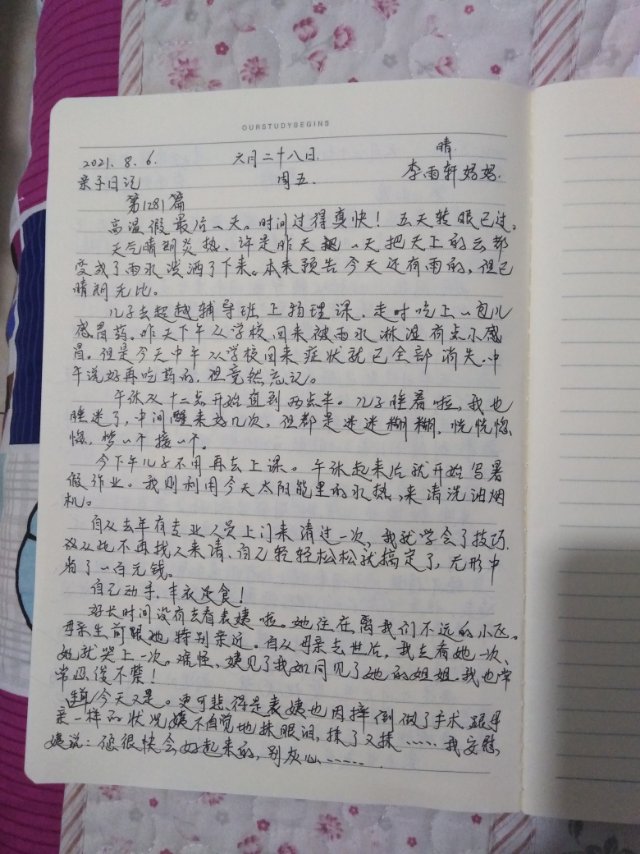 OURSTUDYBEGINS
2021.8.6. 六月二十八日. 晴
亲子日记 周五. 李雨轩妈妈.
第1281篇
高温假最后一天。时间过得真快！五天转眼已过。
天气晴朗炎热、许是昨天把一天把天上的云都
变成了雨水泼洒了下来。本来预告今天还有雨的，但已
晴朗无比。
儿子去超越辅导班上物理课，走时吃上一包儿
感冒药。昨天下午从学校回来被雨水淋湿有点小感
冒。但是今天中午从学校回来症状就已全部消失，中
午说好再吃药的，但竟然忘记。
午休从十二点开始直到两点半。儿子睡着啦，我也
睡迷了，中间醒来好几次，但都是迷迷糊糊，恍恍惚
惚，梦一个接一个。
今下午儿子不用再去上课。午休起来后就开始写暑
假作业。我则利用今天太阳能里的水热，来清洗油烟
机。
自从去年有专业人员上门来清过一次，我就学会了技巧，
从此不再找人来清、自己轻轻松松就搞定了，无形中
省了一百元钱。
自己动手，丰衣足食！
好长时间没有去看表姨啦。她住在离我们不远的小区。
母亲生前跟她特别亲近。自从母亲去世后，我去看她一次、
她就哭上一次。难怪、姨见了我如同见了她的姐姐，我也常
常忍俊不禁！
今天又是。更可悲得是表姨也因摔倒做了手术，跟母
亲一样的状况，姨不自觉地抹眼泪，抹了又抹……我安慰
姨说：您很快会好起来的，别灰心……